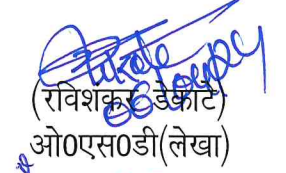 (रविशंकर डेकाटे)
ओ0एस0डी(लेखा)